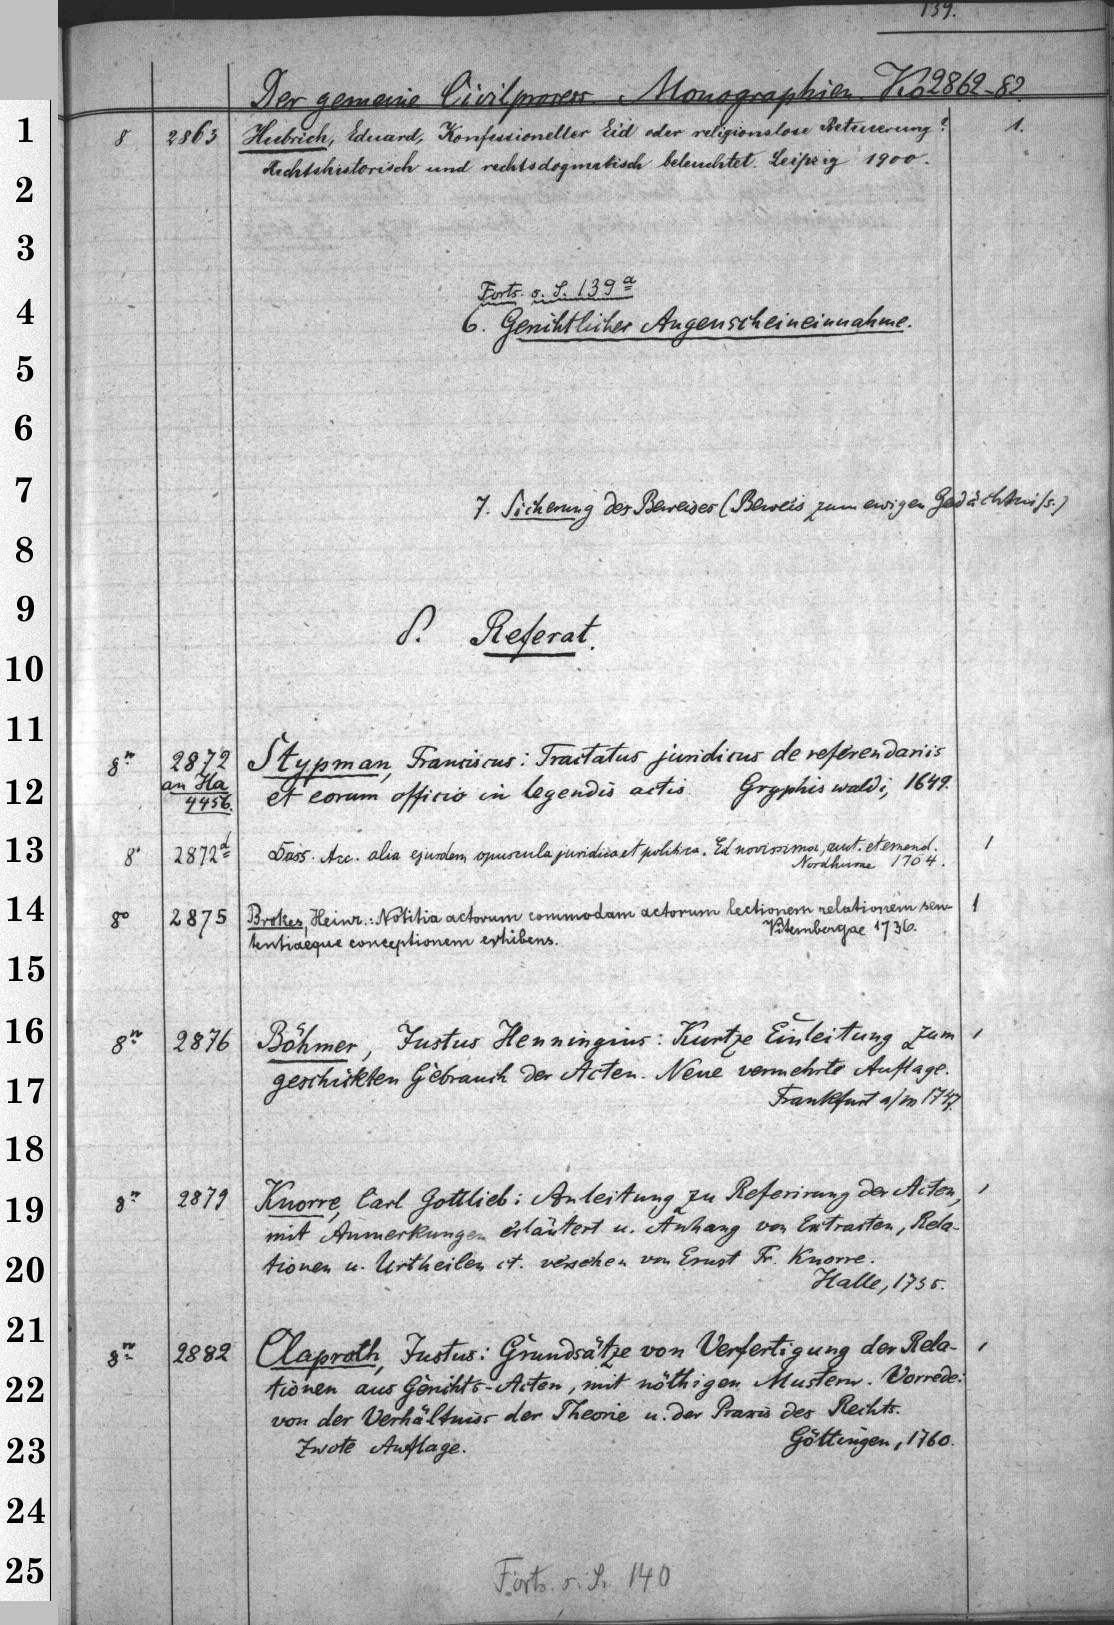 139.
Der gemeine Civilprocess. Monographien. Ko 2862-82.
1
8 2863 Hubrich, Eduard, Konfessioneller Eid oder religionslose Beteuerung? 1.
Rechtshistorisch und rechtsdogmatisch beleuchtet. Leipzig 1900.
2
3
Forts. s. S. 139a
4
6. Gerichtlicher Augenscheineinnahme.
5
6
7
7. Sicherung des Beweises (Beweis zum ewigen Gedächtniss.)
8
9
8. Referat.
10
11
8n 2872 Stypman, Franciscus: Tractatus juridicus de referendariis
an Ha
12
4456. et eorum officio in legendis actis. Gryphiswaldi, 1649.
13
8° 2872d Dass. Acc. alia ejusdem opuscula juridica et politica. Ed novissima, aut. et emend. 1
Nordhusae 1704.
14
8° 2875 Brokes, Heinr.: Notitia actorum commodam actorum lectionem relationem sen- 1
tentiaeque conceptionem exhibens. Vitembergae 1736.
15
16
8n 2876 Böhmer, Justus Henningius: Kurtze Einleitung zum 1
geschickten Gebrauch der Acten. Neue vermehrte Auflage.
17
Frankfurt a/m 1747.
18
19
8n 2879 Knorre, Carl Gottlieb: Anleitung zu Referirung der Acten, 1
mit Anmerkungen erläutert u. Anhang von Extracten, Rela-
20
tionen u. Urtheilen et. versehen von Ernst Fr. Knorre.
Halle, 1755.
21
8n 2882 Claproth, Justus: Grundsätze von Verfertigung der Rela- 1
22
tionen aus Gerichts-Acten, mit nöthigen Mustern. Vorrede:
von der Verhältniss der Theorie u. der Praxis des Rechts.
23
Zwote Auflage. Göttingen, 1760.
24
25
Forts. s. S. 140